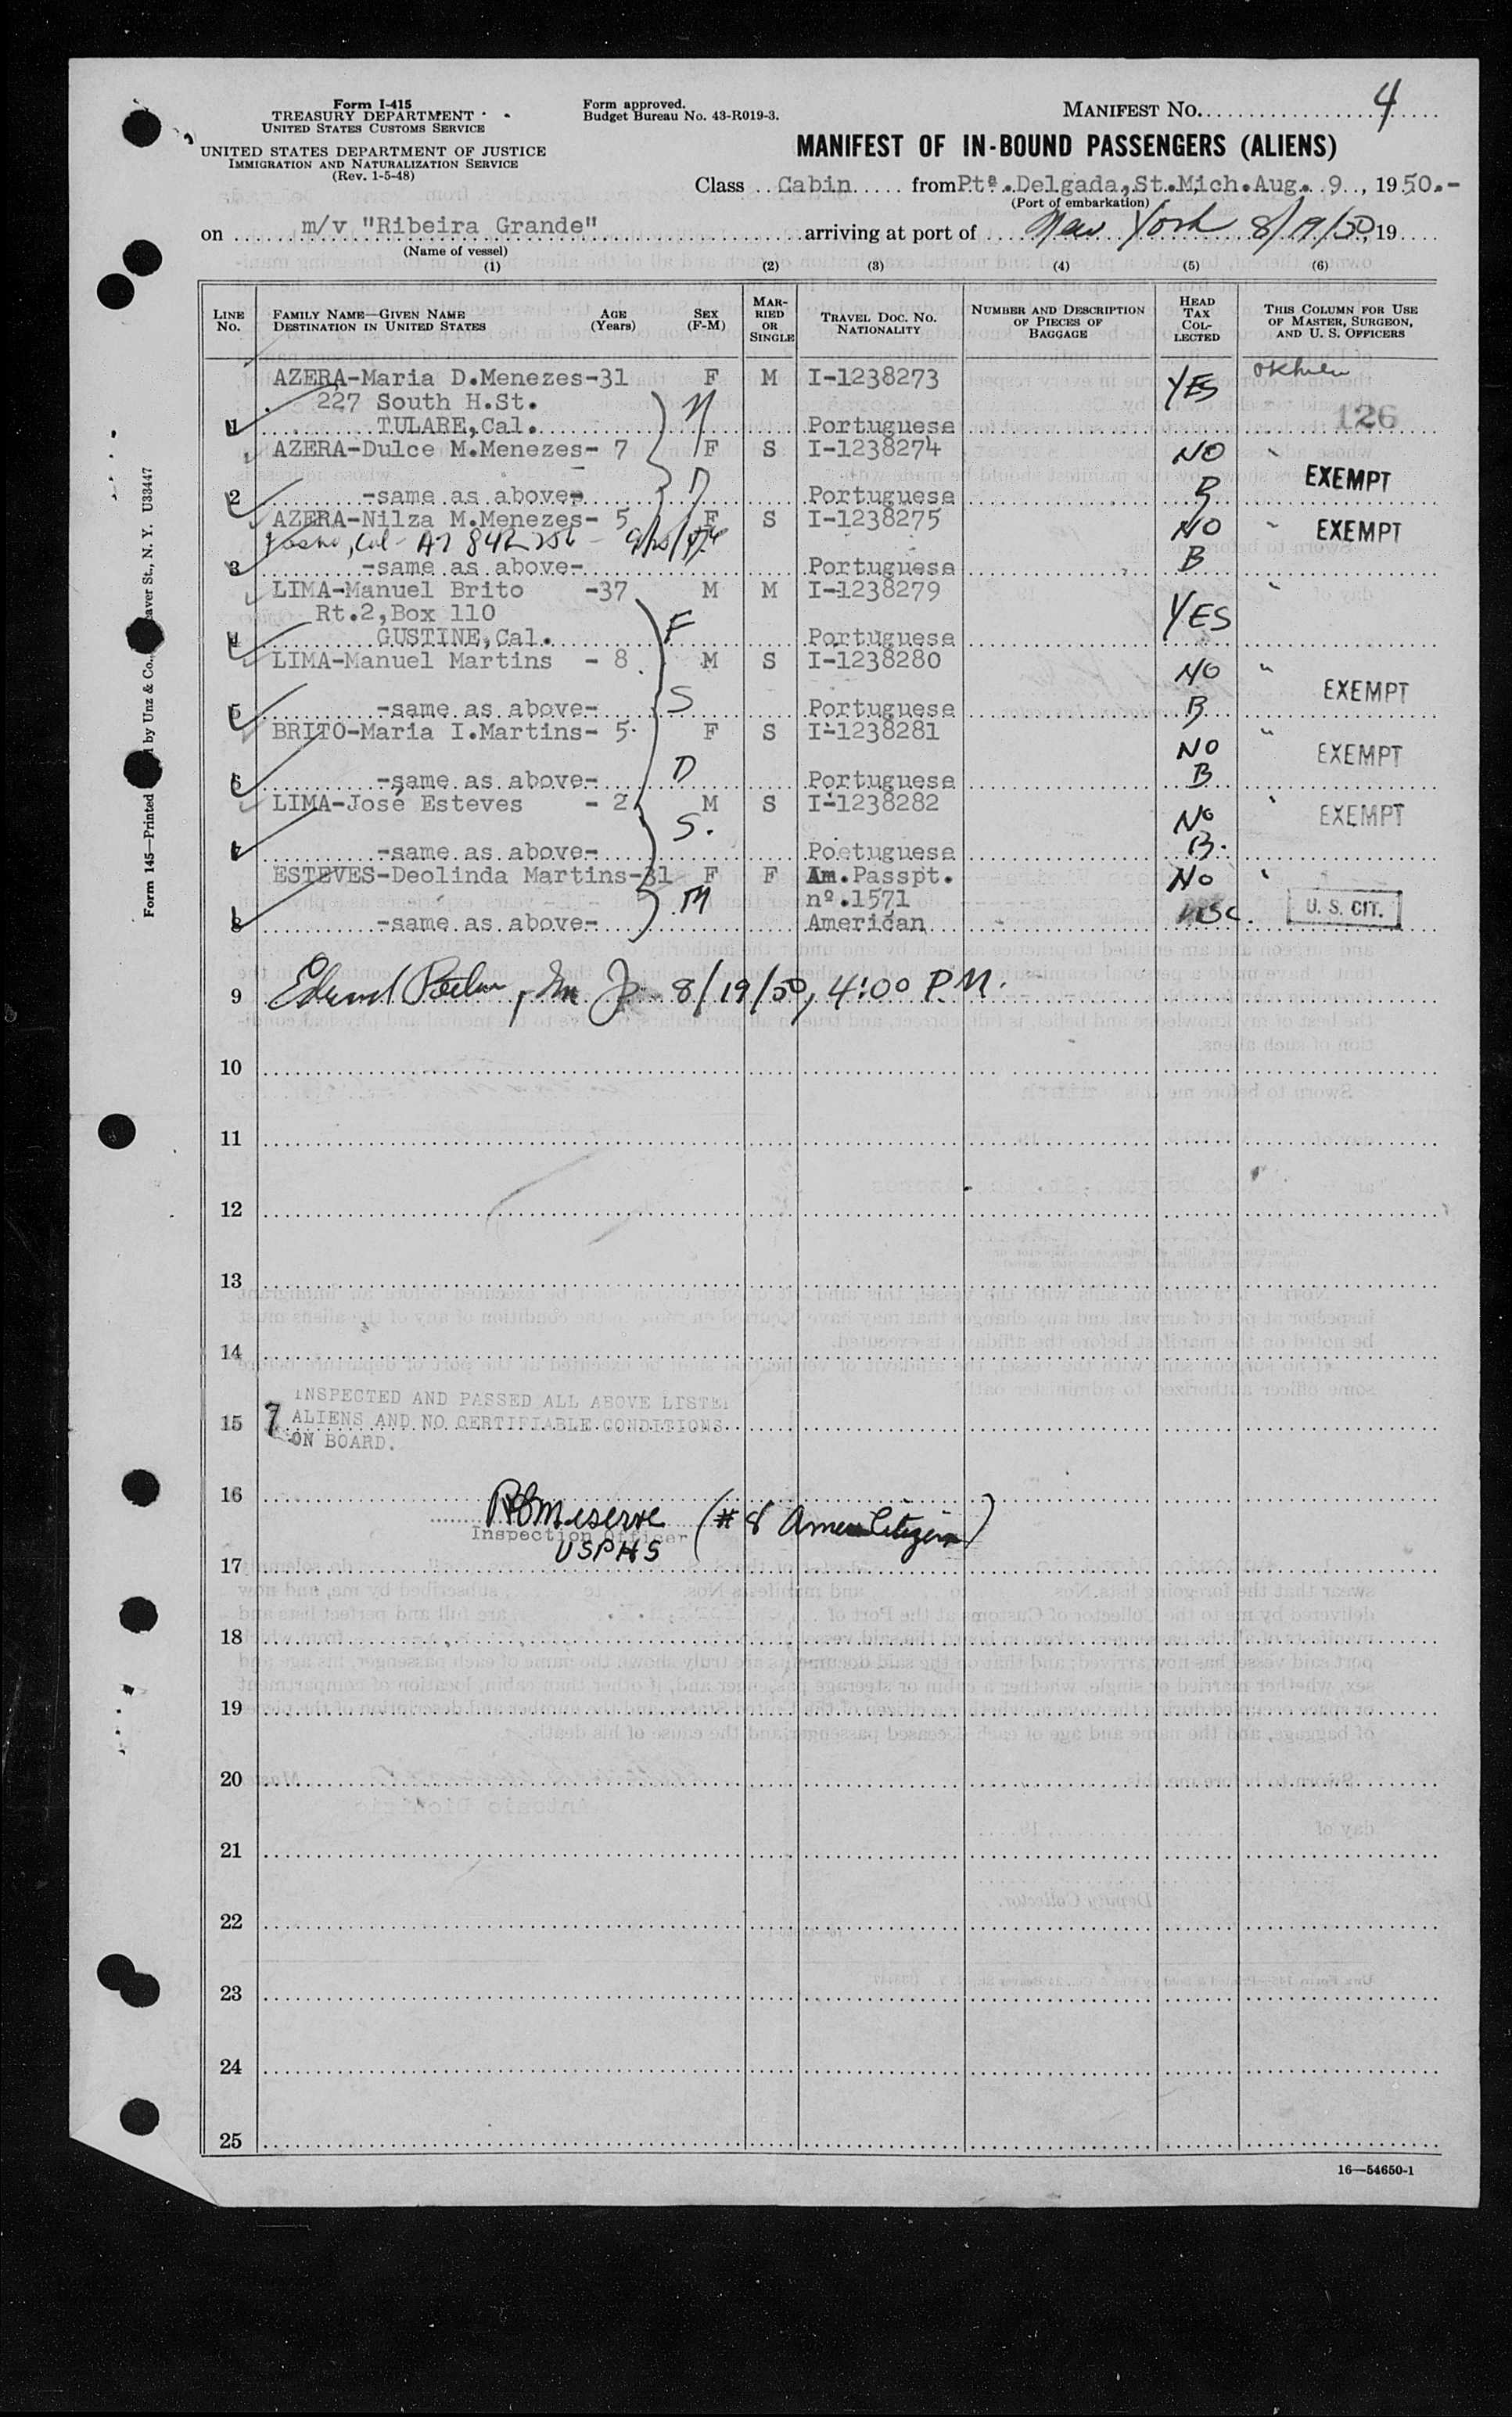 Form I-415
TREASURY DEPARTMENT
UNITED STATES CUSTOMS SERVICE
UNITED STATES DEPARTMENT OF JUSTICE
IMMIGRATION AND NATURALIZATION SERVICE
(Rev. 1-5-48)
Form approved.
Budget Bureau No. 43-R019-3.
MANIFEST NO. 4
MANIFEST OF IN-BOUND PASSENGERS (ALIENS)
Class Cabin from Ptª. Delgada, St. Mich. Aug. 9, 1950.-
(Port of embarkation)
on m/v "Ribeira Grande" arriving at port of New York 8/19/50, 19
(Name of vessel)
(1) (2) (3) (4) (5) (6)
LINE No. FAMILY NAME—GIVEN NAME DESTINATION IN UNITED STATES AGE (Years) SEX (F-M) MARRIED OR SINGLE TRAVEL DOC. NO. NATIONALITY NUMBER AND DESCRIPTION OF PIECES OF BAGGAGE HEAD TAX COLLECTED THIS COLUMN FOR USE OF MASTER, SURGEON, AND U. S. OFFICERS
AZERA-Maria D.Menezes-31 F M I-1238273 YES
227 South H.St. M
1 TULARE,Cal. Portuguese 126
AZERA-Dulce M.Menezes- 7 F S I-1238274 NO "
EXEMPT
2 -same as above- D Portuguese B
AZERA-Nilza M.Menezes- 5 F S I-1238275 NO " EXEMPT
3 -same as above- Portuguese B
LIMA-Manuel Brito -37 M M I-1238279 "
Rt.2,Box 110 YES
4 GUSTINE,Cal. F Portuguese
LIMA-Manuel Martins - 8 M S I-1238280 NO "
EXEMPT
5 -same as above- S Portuguese B
BRITO-Maria I.Martins- 5 F S I-1238281 NO "
EXEMPT
6 -same as above- D Portuguese B
LIMA-José Esteves - 2 M S I-1238282 NO "
EXEMPT
7 -same as above- S. Poetuguese B.
ESTEVES-Deolinda Martins-31 F F Am.Passpt. No "
nº.1571 U. S. CIT.
8 -same as above- M American USC.
9 8/19/50, 4:00 P.M.
10
11
12
13
14
INSPECTED AND PASSED ALL ABOVE LISTED
15 7 ALIENS AND NO CERTIFIABLE CONDITIONS
ON BOARD.
16
REMeserve (#8 Amer Citizen)
Inspection Officer
USPHS
17
18
19
20
21
22
23
24
25
16—54650-1
Form 145—Printed by Unz & Co., eaver St., N. Y. U33447